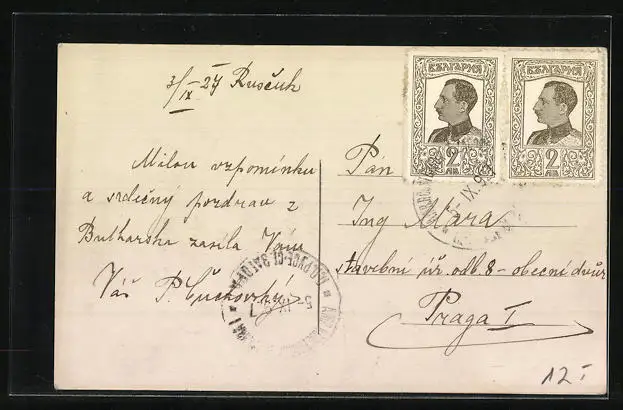 3/IX 27 Ruščuk
Milou vzpomínku
a srdečný pozdrav z
Bulharska zasílá Vám
Váš P.
БЪЛГАРИЯ
2
ЛВ.
БЪЛГАРИЯ
2
ЛВ.
Pán
Ing Mára
stavební úř. odb. 8 - obecní dvůr
Praga I
12.-